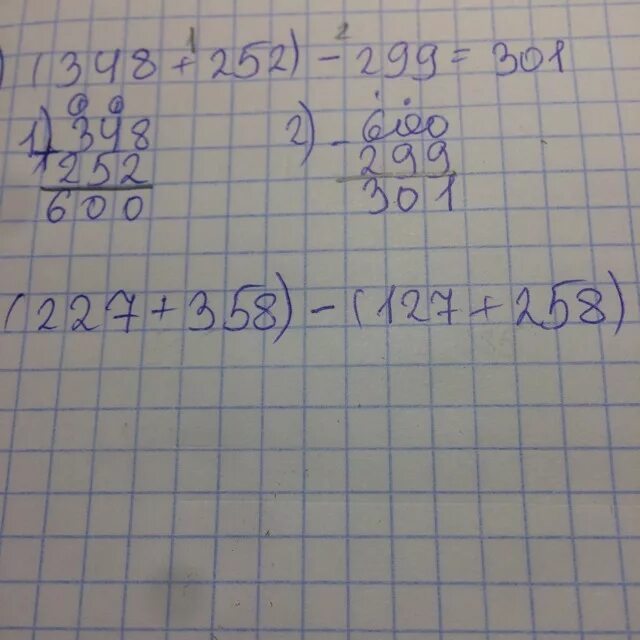 1 2
) (348 + 252) - 299 = 301
1) + 348 2) - 600
252 299
600 301
(227 + 358) - (127 + 258)